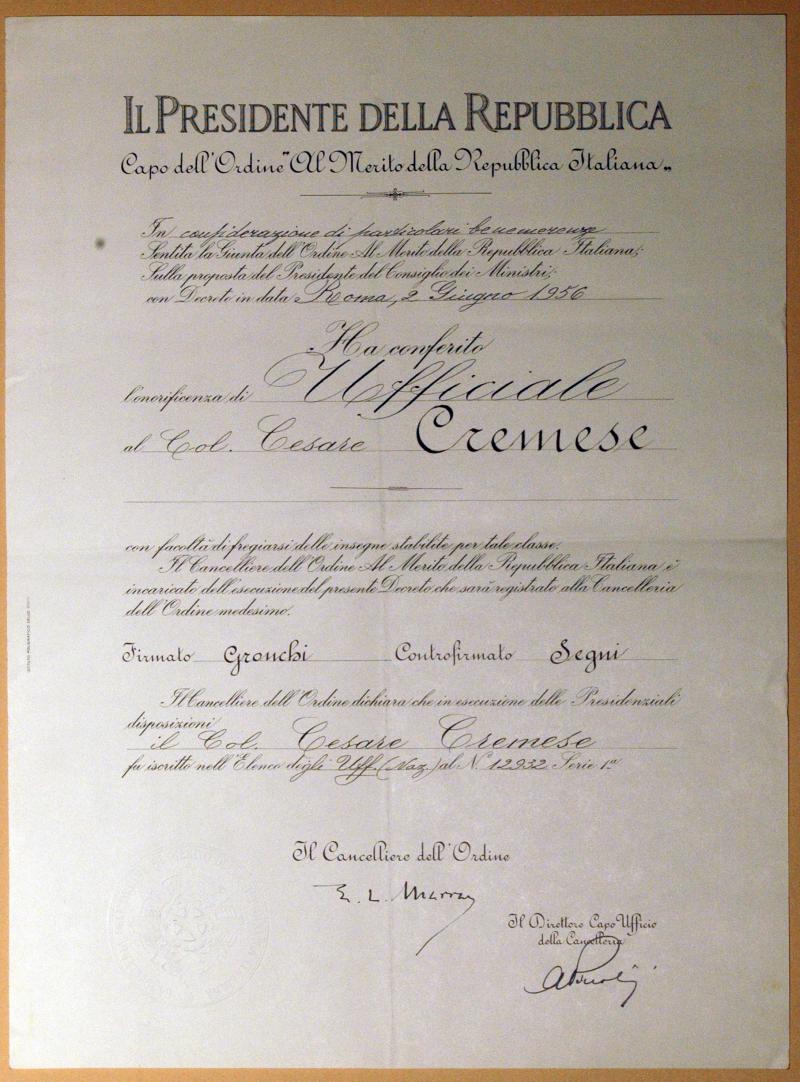 IL PRESIDENTE DELLA REPUBBLICA
Capo dell'Ordine "Al Merito della Repubblica Italiana„
In considerazione di particolari benemerenze
Sentita la Giunta dell'Ordine Al Merito della Repubblica Italiana;
Sulla proposta del Presidente del Consiglio dei Ministri;
con Decreto in data Roma, 2 Giugno 1956
Ha conferito
l'onorificenza di Ufficiale
al Col. Cesare Cremese
con facoltà di fregiarsi delle insegne stabilite per tale classe.
Il Cancelliere dell'Ordine Al Merito della Repubblica Italiana è
incaricato dell'esecuzione del presente Decreto che sarà registrato alla Cancelleria
dell'Ordine medesimo.
Firmato Gronchi Controfirmato Segni
Il Cancelliere dell'Ordine dichiara che in esecuzione delle Presidenziali
disposizioni
il Col. Cesare Cremese
fu iscritto nell'Elenco degli Uff. (Naz.) al N. 12932 Serie 1ª
Il Cancelliere dell'Ordine
E. L.
Il Direttore Capo Ufficio
della Cancelleria